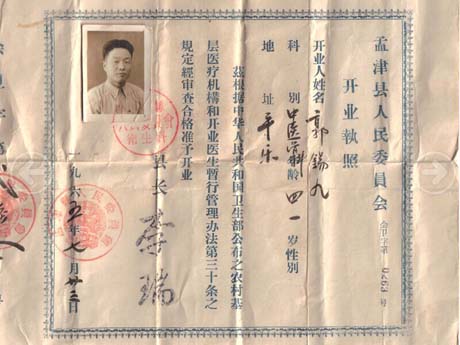 孟津县人民委員会
开业執照
会卫字第 0263 号
开业人姓名 郭錫九
科别 中医 科 龄 四一 岁 性别
地址 平乐
茲根据中华人民共和国卫生部公布之农村基
层医疗机構和开业医生暂行管理办法第三十条之
規定經审查合格准予开业
县长 瑞
一九六五年七月廿三日